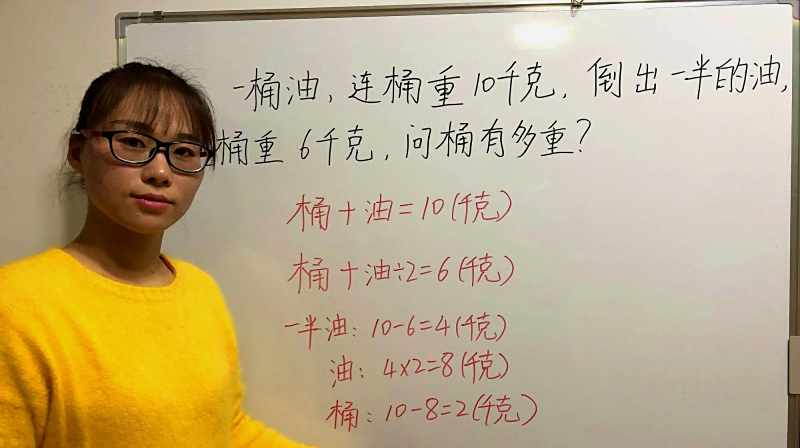 一桶油,连桶重10千克,倒出一半的油,
桶重6千克,问桶有多重?
桶+油=10(千克)
桶+油÷2=6(千克)
一半油:10-6=4(千克)
油:4×2=8(千克)
桶:10-8=2(千克)